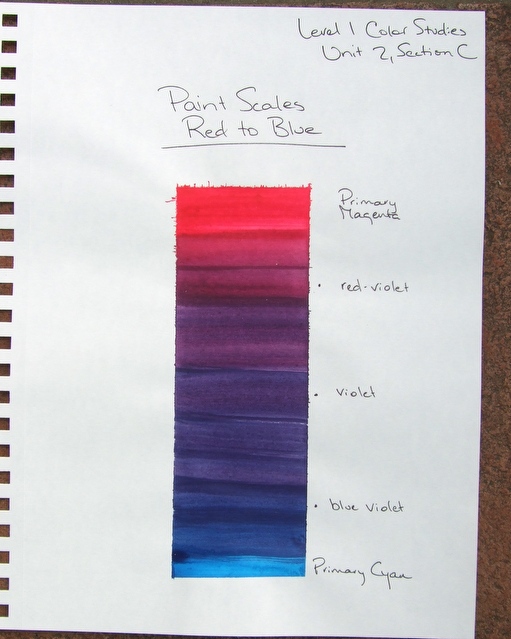 Level 1 Color Studies
Unit 2, Section C
Paint Scales
Red to Blue
Primary
Magenta
• red-violet
• violet
• blue violet
Primary Cyan